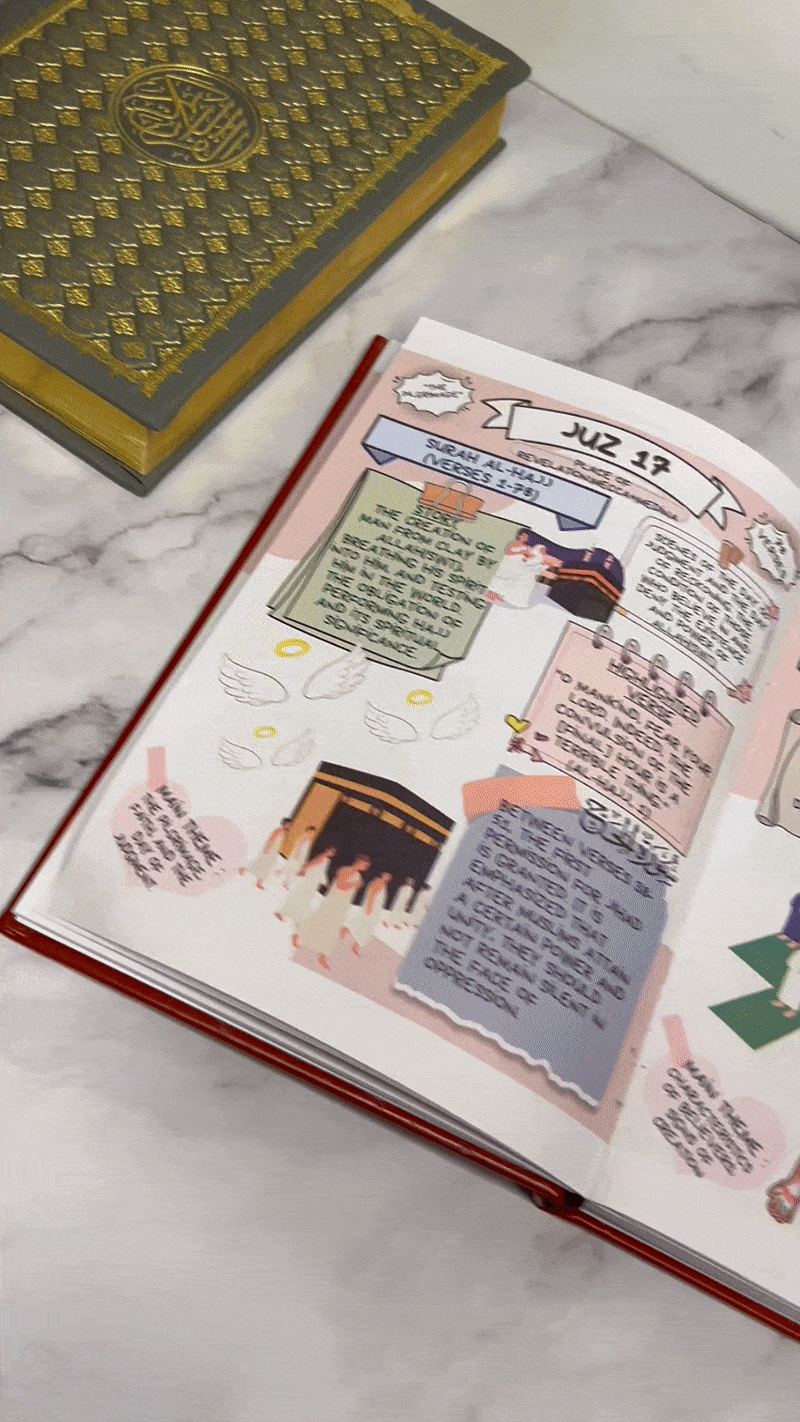 "THE
PILGRIMAGE"
JUZ 17
SURAH AL-HAJJ
(VERSES 1-78)
PLACE OF
STORY
THE CREATION OF
MAN FROM CLAY BY
ALLAH(SWT),
BREATHING HIS SPIRIT
INTO HIM, AND TESTING
HIM IN THE WORLD.
THE OBLIGATION OF
PERFORMING HAJJ
AND ITS SPIRITUAL
SIGNIFICANCE
SCENES OF THE DAY OF
JUDGMENT AND THE
OF RECKONING. THE
CONDITION OF THOSE
WHO BELIEVE, THOSE
AND POWER OF
HIGHLIGHTED
VERSE
"O MANKIND, FEAR YOUR
LORD. INDEED, THE
CONVULSION OF THE
[FINAL] HOUR IS A
TERRIBLE THING."
(AL-HAJJ, 1)
BETWEEN VERSES 38-
THE FIRST
PERMISSION FOR JIHAD
IS GRANTED. IT IS
EMPHASIZED THAT
AFTER MUSLIMS ATTAIN
A CERTAIN POWER AND
UNITY, THEY SHOULD
NOT REMAIN SILENT IN
THE FACE OF
OPPRESSION.
MAIN THEME :
THE PILGRIMAGE,
AND THE
DAY OF
JUDGMENT
MAIN THEME
CHARACTERISTICS
OF BELIEVERS,
SIGNS OF
CREATION